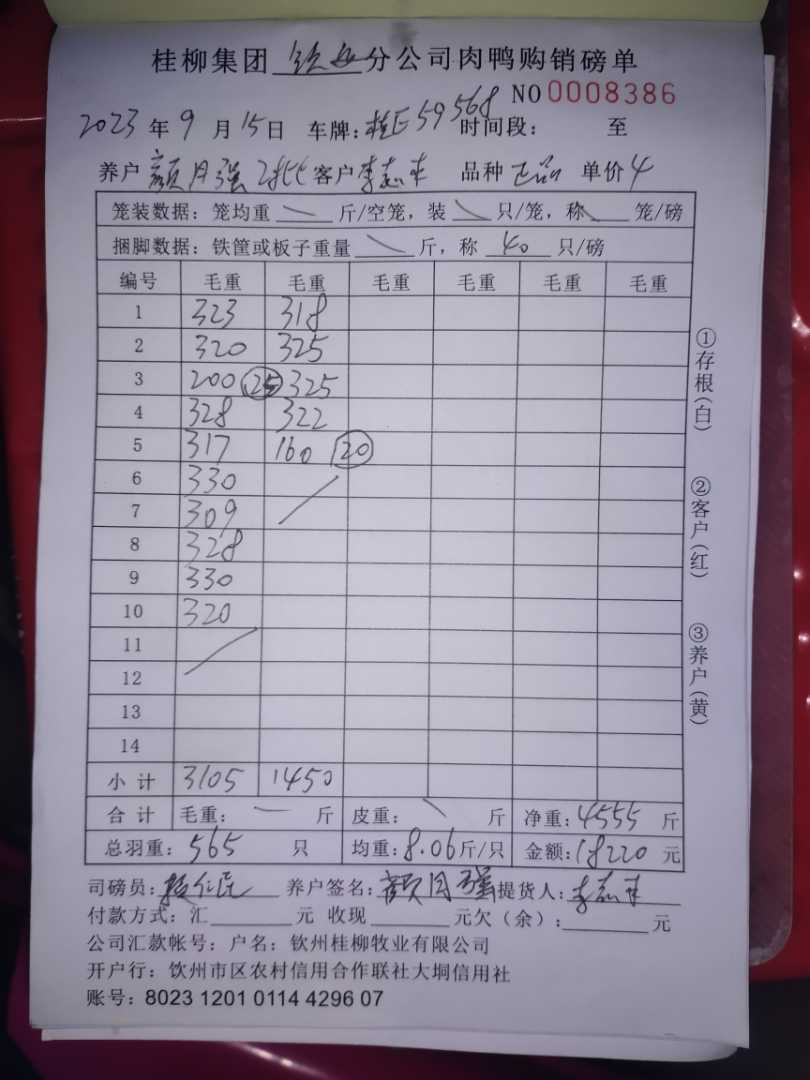 桂柳集团 钦州 分公司肉鸭购销磅单
NO 0008386
2023 年 9 月 15 日 车牌: 桂E59568 时间段: 至
养户 颜月强 2批 客户 李志 品种 正品 单价 4
笼装数据: 笼均重 斤/空笼, 装 只/笼, 称 笼/磅
捆脚数据: 铁筐或板子重量 斤, 称 40 只/磅
编号 毛重 毛重 毛重 毛重 毛重 毛重
1 323 318
2 320 325
3 200 25 325
4 328 322
5 317 160 20
6 330
7 309
8 328
9 330
10 320
11
12
13
14
小计 3105 1450
合计 毛重: 斤 皮重: 斤 净重: 4555 斤
总羽重: 565 只 均重: 8.06 斤/只 金额: 18220 元
司磅员: 养户签名: 颜月强 提货人: 李志
付款方式: 汇 元 收现 元欠(余): 元
公司汇款帐号: 户名: 钦州桂柳牧业有限公司
开户行: 饮州市区农村信用合作联社大垌信用社
账号: 8023 1201 0114 4296 07
①存根(白)
②客户(红)
③养户(黄)